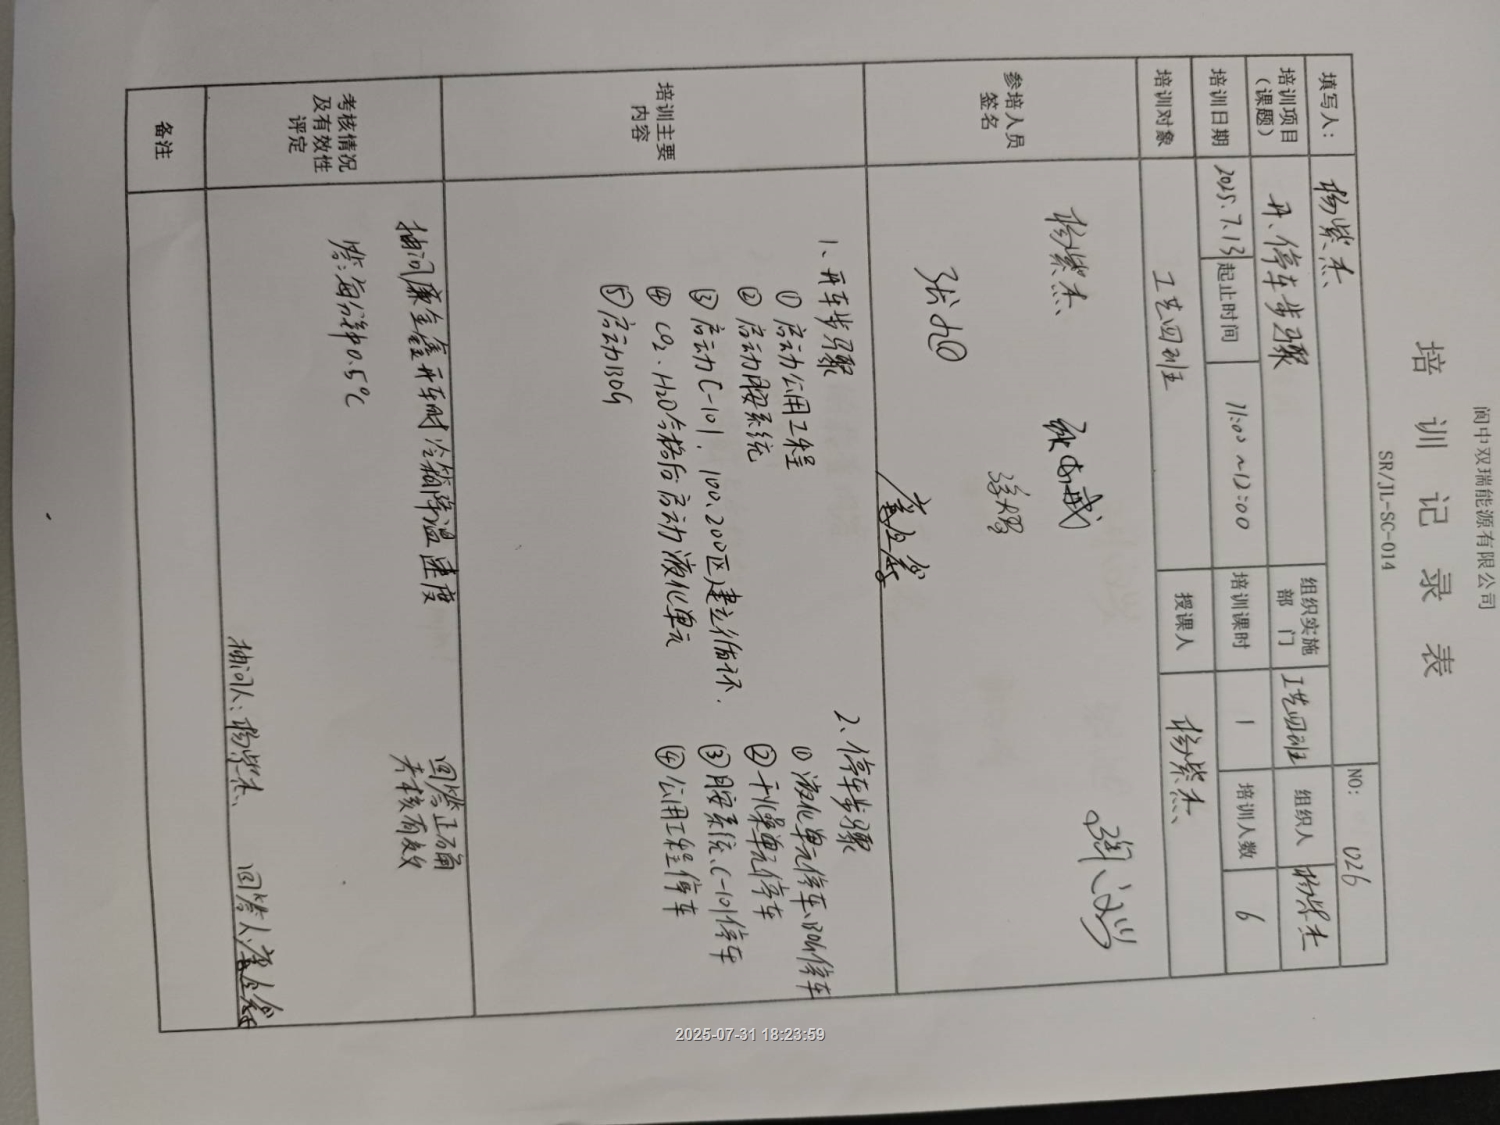 阆中双瑞能源有限公司
培训记录表
SR/JL-SC-014
NO: 026
填写人: 杨紫杰
培训项目（课题） 开、停车步骤 组织实施部门 工艺四班 组织人 杨紫杰
培训日期 2025.7.13 起止时间 11:00～12:00 培训课时 1 培训人数 6
培训对象 工艺四班 授课人 杨紫杰
参培人员签名
杨紫杰
培训主要内容
1、开车步骤
① 启动公用工程
② 启动胺系统
③ 启动C-101，100、200区建立循环.
④ CO2、H2O合格后启动液化单元
⑤ 启动BOG
2、停车步骤
① 液化单元停车、BOG停车
② 干燥单元停车
③ 胺系统、C-101停车
④ 公用工程停车
考核情况及有效性评定
抽问 金鑫开车时冷箱降温速度
答：每分钟0.5℃
回答正确
考核有效
抽问人：杨紫杰 回答人：
备注
2025-07-31 18:23:59